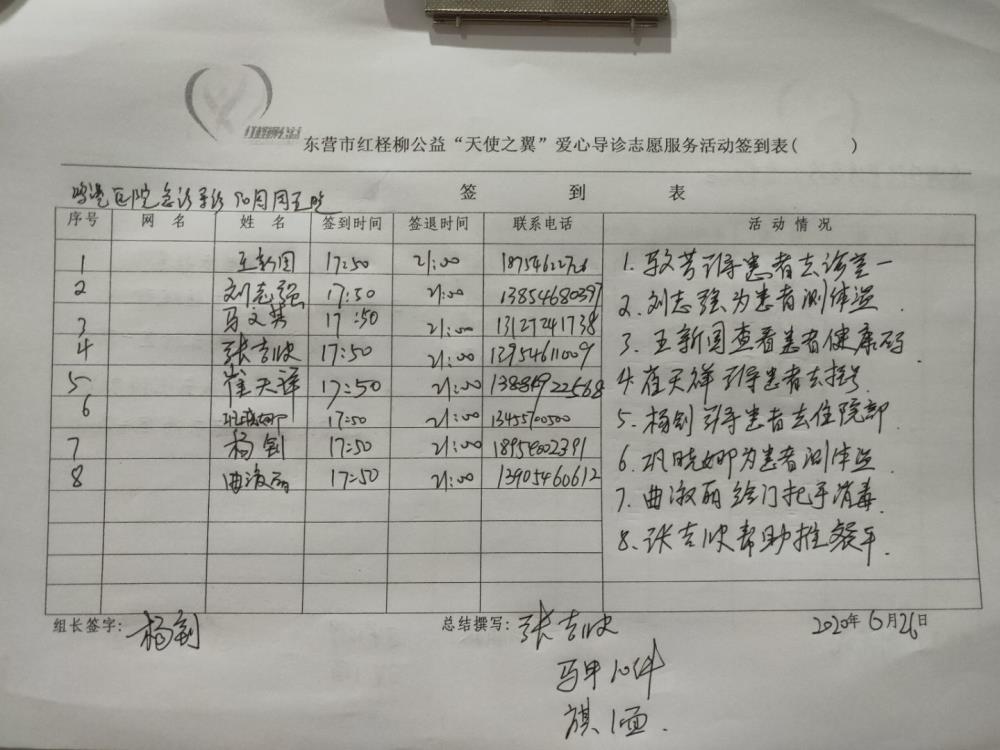 红柽柳公益
东营市红柽柳公益“天使之翼”爱心导诊志愿服务活动签到表( )
签 到 表
医院急诊导诊 周五晚
序号 网 名 姓 名 签到时间 签退时间 联系电话 活动情况
1 王新图 17:50 21:00 18754622726
2 刘志强 17:50 21:00 13854680397
3 马文英 17:50 21:00 13127241738
4 张吉欣 17:50 21:00 13954611009
5 崔天祥 17:50 21:00
6 巩晓娜 17:50 21:00 13455700500
7 杨剑 17:50 21:00 18954602391
8 曲淑丽 17:50 21:00 13905460612
1. 引导患者去诊室一
2. 刘志强为患者测体温
3. 王新图查看患者健康码
4. 崔天祥引导患者去挂号
5. 杨剑引导患者去住院部
6. 巩晓娜为患者测体温
7. 曲淑丽给门把手消毒
8. 张吉欣帮助推餐车.
组长签字: 杨剑 总结撰写: 张吉欣 2020年6月26日
马甲10件
旗1面.